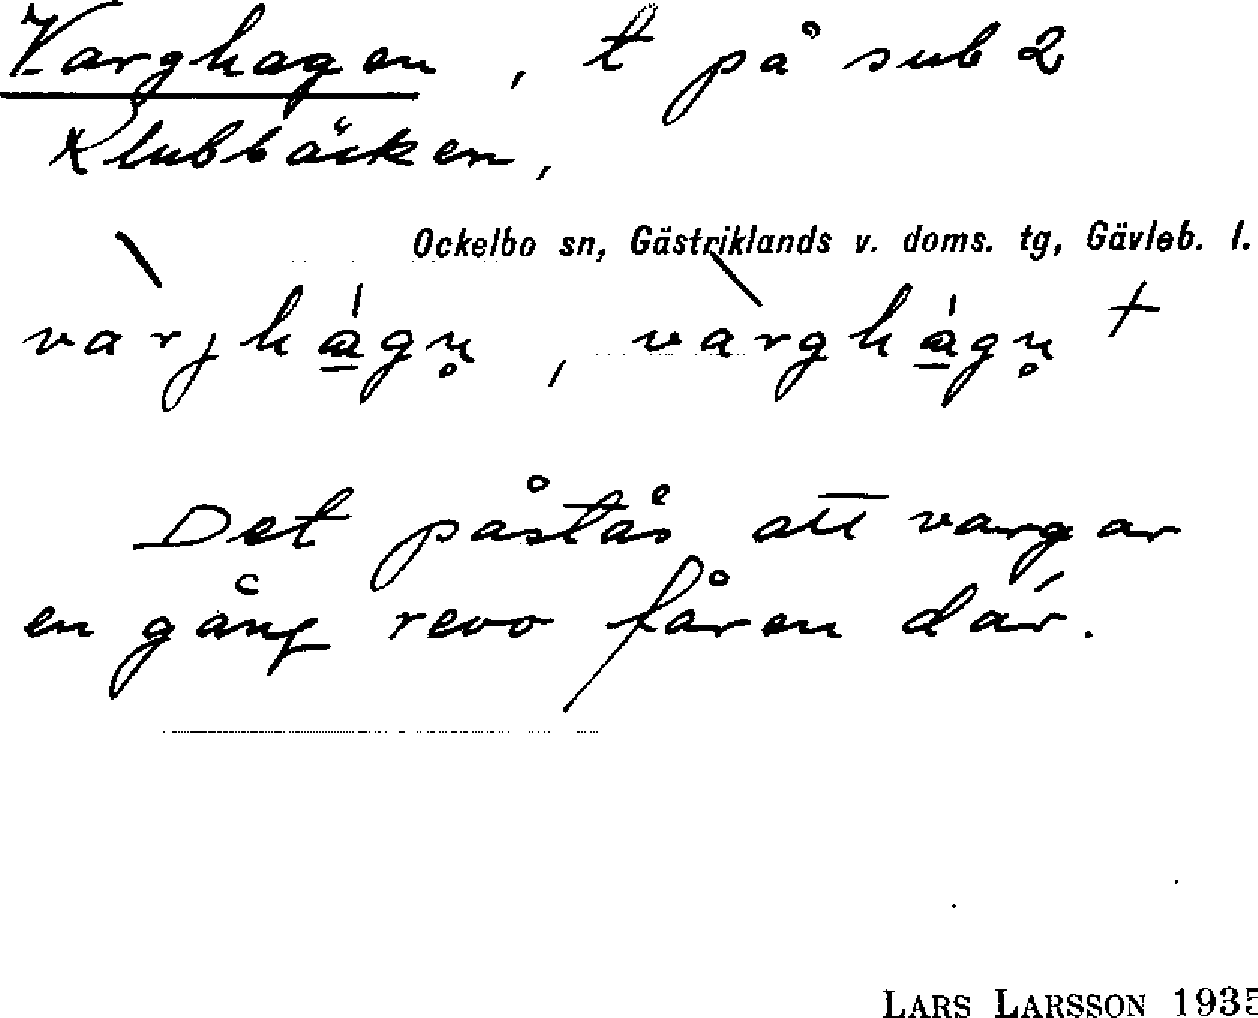 Varghagen, t på sub 2
Klubbäcken,
Ockelbo sn, Gästriklands v. doms. tg, Gävleb. l.
várjhág̣n̥, várghág̣n̥ +
Det påstås att vargar
en gång revo fåren där.
LARS LARSSON 1935